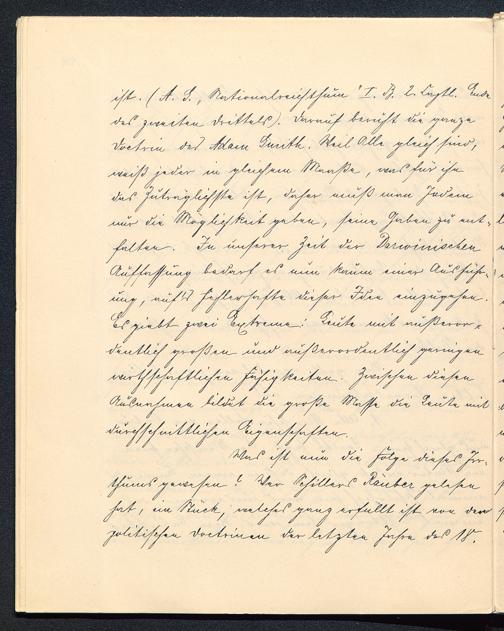 ist. (A. S., Nationalreichthum I. B. 2. Captl. Ende
des zweiten Drittels). Darauf beruht die ganze
Doctrin des Adam Smith. Weil Alle gleich sind,
weiß jeder in gleichem Maaße, was für ihn
das Zuträglichste ist, daher muß man Jedem
nur die Möglichkeit geben, seine Gaben zu ent-
falten. In unserer Zeit der Darwinischen
Auffassung bedarf es nun kaum einer Ausführ-
ung, auf's Fehlerhafte dieser Idee einzugehen.
Es giebt zwei Extreme: Leute mit außeror-
dentlich großen und außerordentlich geringen
wirthschaftlichen Fähigkeiten. Zwischen diesen
Ausnahmen bildet die große Masse die Leute mit
durchschnittlichen Eigenschaften.
Was ist nun die Folge dieses Irr-
thums gewesen? Wer Schillers Räuber gelesen
hat, ein Stück, welches ganz erfüllt ist von den
politischen Doctrinen der letzten Jahre des 18.